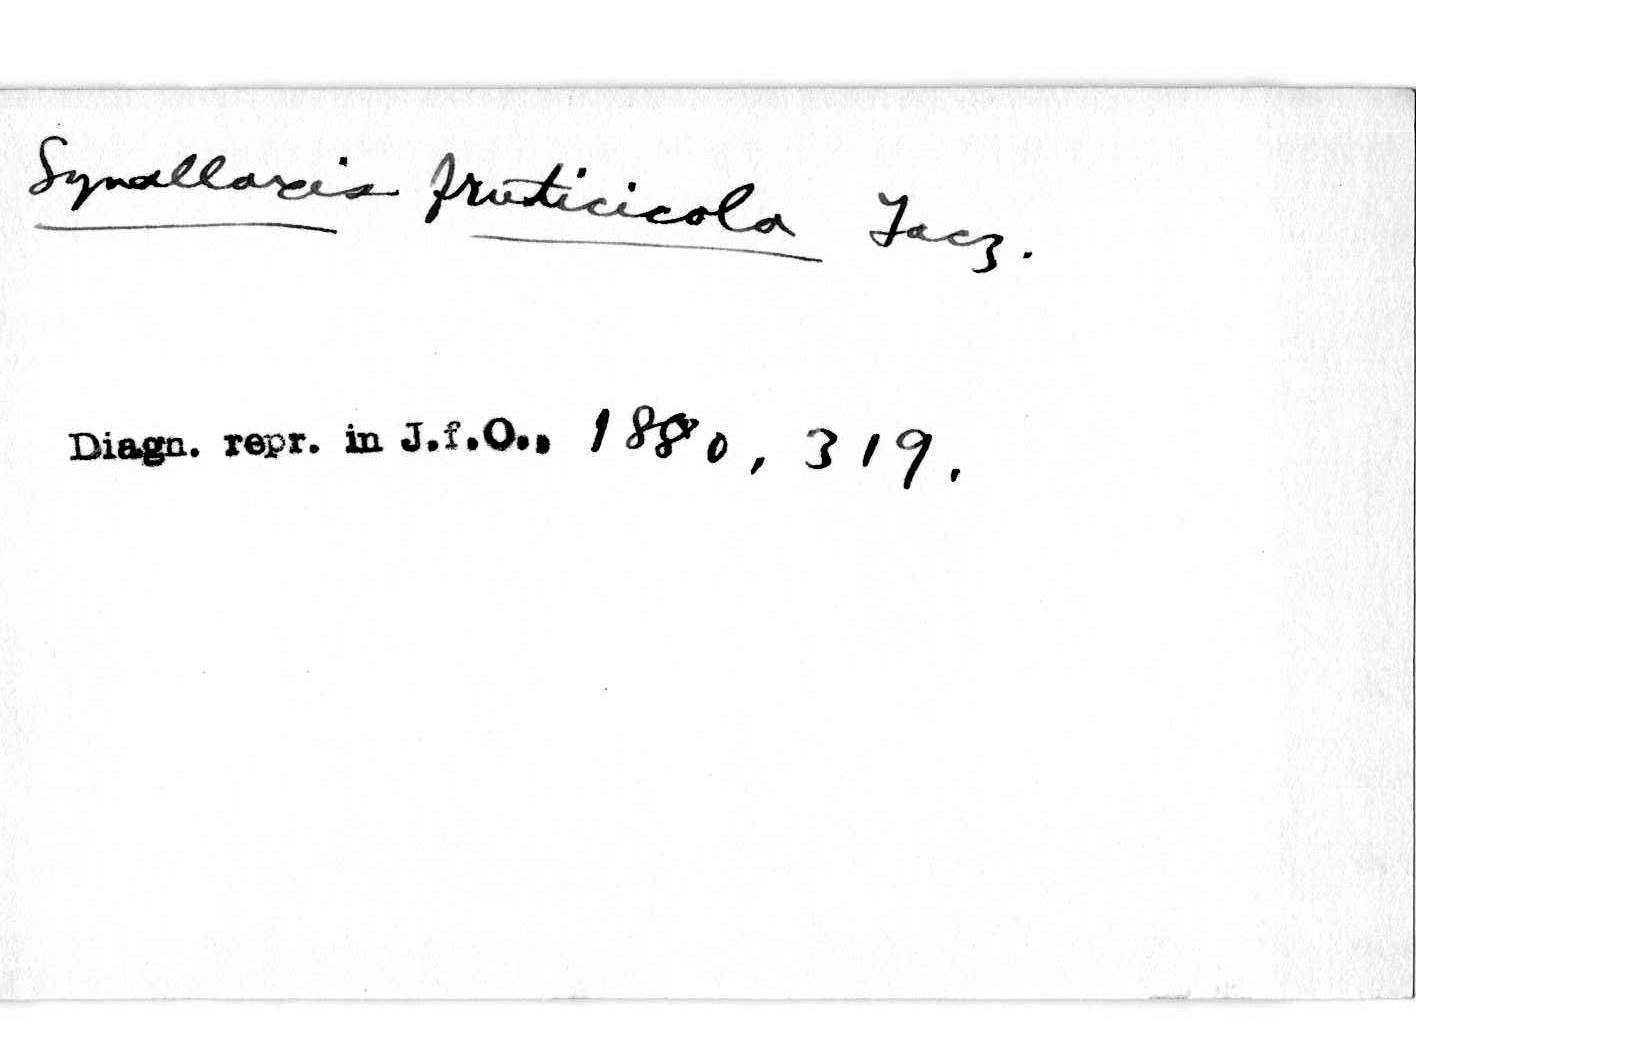 Synallaxis fruticicola Tacz.
Diagn. repr. in J.f.O., 1880, 319.